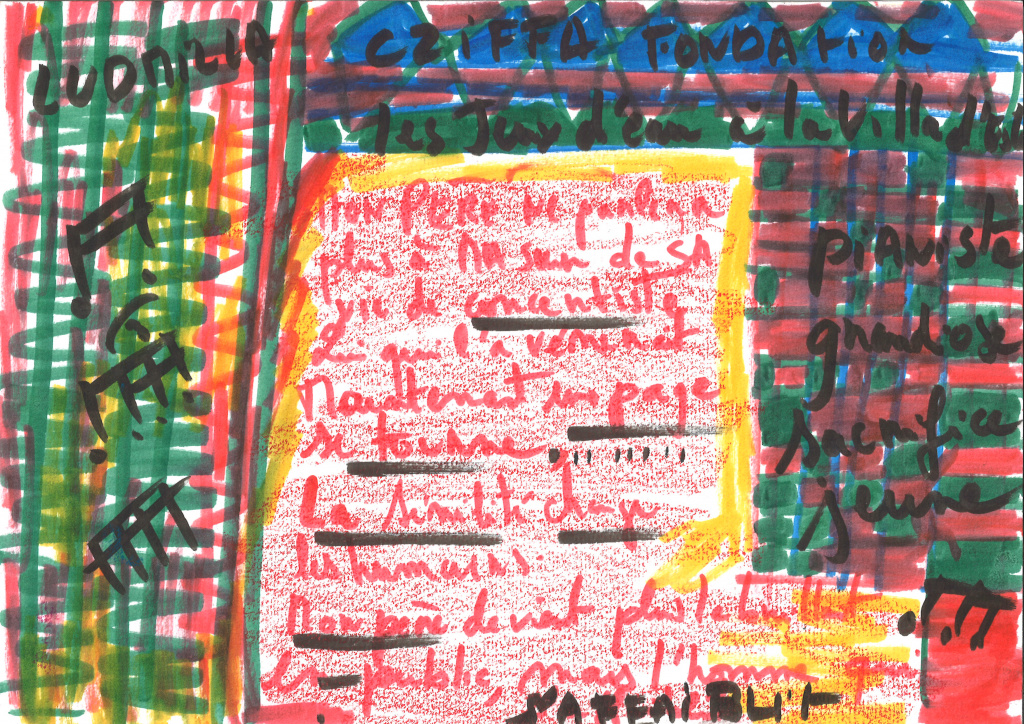 LUDMILLA
CZIFFA FONDATION
les Jeux d'eau à la Villa d'Est
Mon PERE ne parlera
plus à MA sœur de SA
vie de concertiste
Lui qui l'a
Maintenant une page
se tourne, .......
La sénilité change
les humains.
Mon père devient plus
En public, mais l'homme
S'AFFAIBLIT
pianiste
grandiose
sacrifice
jeune